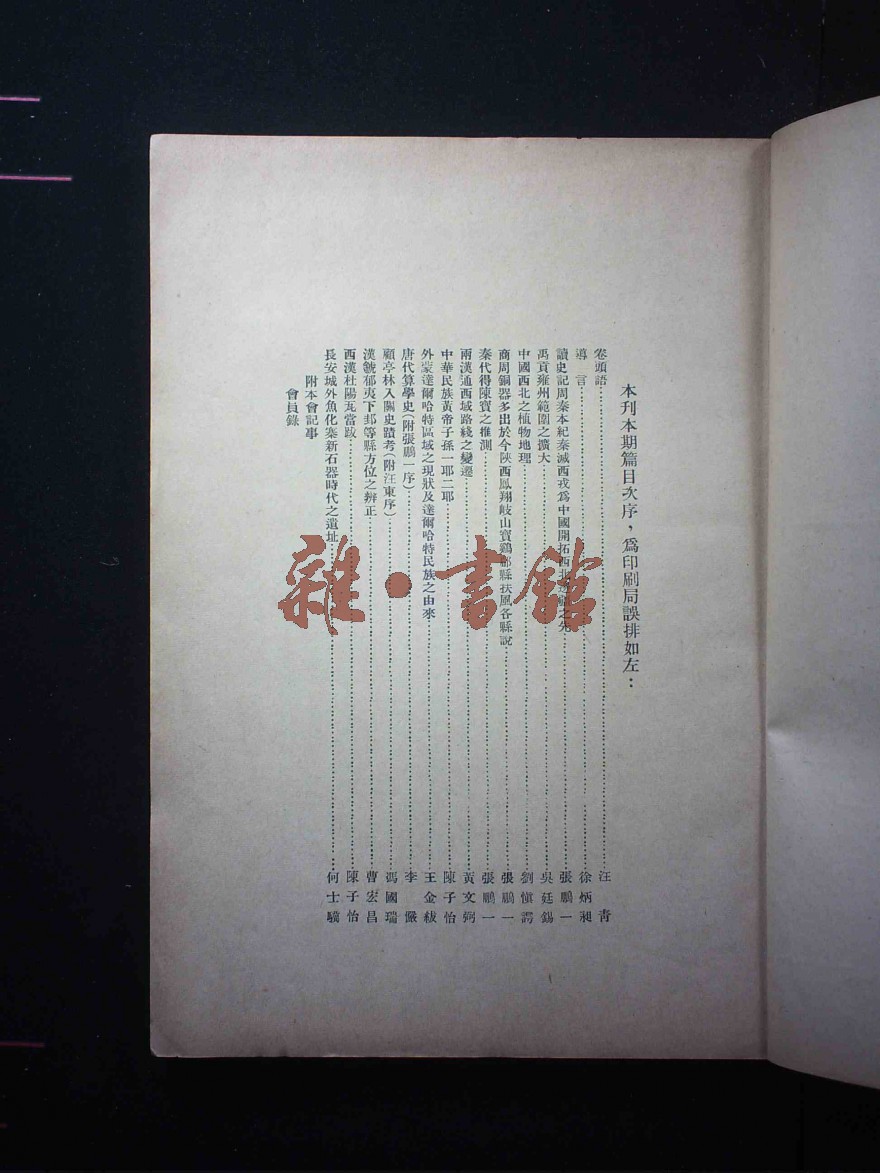 本刊本期篇目次序，爲印刷局誤排如左：
卷頭語 汪青
導言 徐炳昶
讀史記周秦本紀秦滅西戎爲中國開拓西北之先 張鵬一
禹貢雍州範圍之擴大 吳廷錫
中國西北之植物地理 劉愼諤
商周銅器多出於今陝西鳳翔岐山寶鷄郿縣扶風各縣說 張鵬一
秦代得陳寶之推測 張鵬一
兩漢通西域路綫之變遷 黃文弼
中華民族黃帝子孫一耶二耶 陳子怡
外蒙達爾哈特區域之現狀及達爾哈特民族之由來 王金紱
唐代算學史（附張鵬一序） 李儼
顧亭林入關史蹟考（附汪東序） 馮國瑞
漢虢郁夷下邽等縣方位之辨正 曹宏昌
西漢杜陽瓦當跋 陳子怡
長安城外魚化寨新石器時代之遺址 何士驥
附本會記事
會員錄
雜·書館